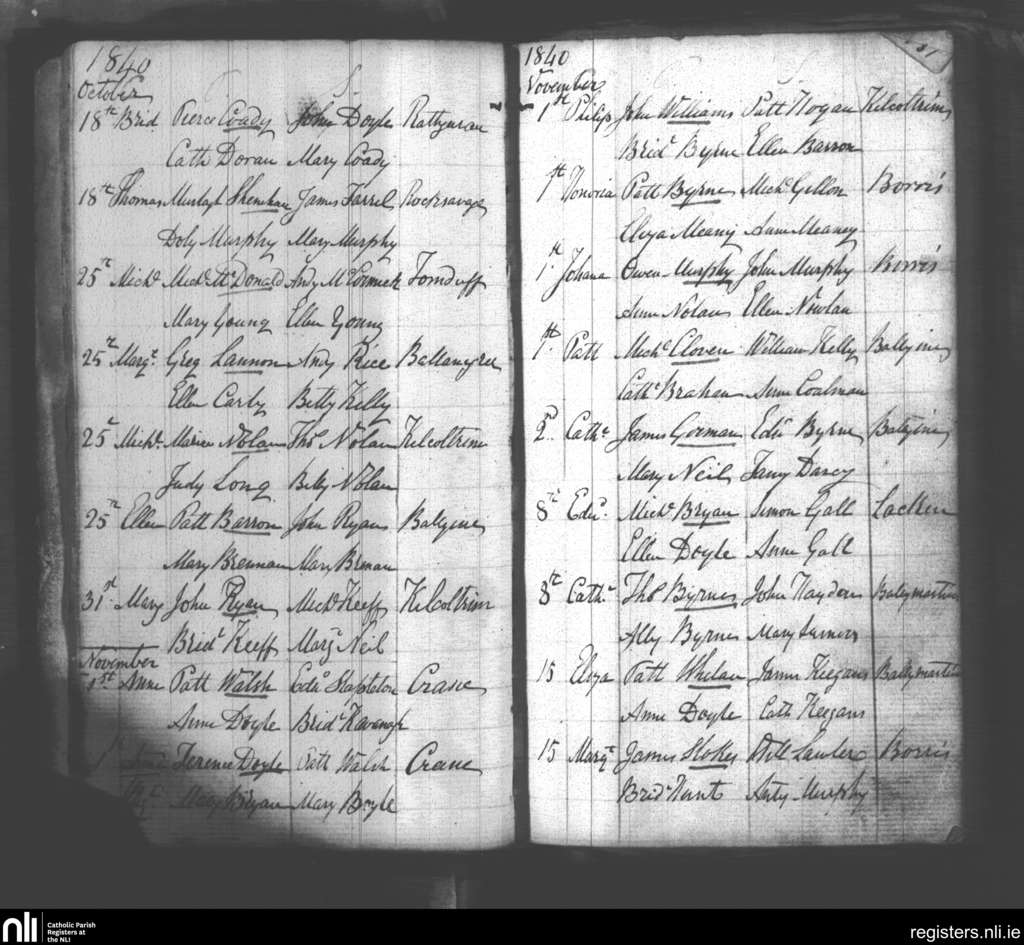 1840
October
18th Brid Pierce Coady John Doyle Rathgeran
Cath Doran Mary Coady
18th Thomas Murtagh Shenehan James Farrel Rocksavage
Doly Murphy Mary Murphy
25th Michl Michl McDonald Andy McCormick Tomduff
Mary Young Ellen Young
25th Margt Greg Lannon Andy Rice
Ellen Carty Betty Kelly
25th Michl Nolan Thos Nolan Kilcoltrim
Judy Long Betty Nolan
25th Ellen Patt Barron John Ryan Balyine
Mary Brennan Mary Brenan
31st Mary John Ryan Michl Keeff Kilcoltrim
Bridt Keeff Margt Neil
November
1st Anne Patt Walsh Edd Stapleton Crane
Anne Doyle Bridt Kavanagh
1st Terence Doyle Patt Walsh Crane
Mary Bryan Mary Boyle
1840
November
1st Philip John Williams Patt Hogan Kilcoltrim
Bridt Byrne Ellen Barron
1st Patt Byrne Michl Gillon Borris
Eliza Meany Anne Meaney
1st Johana Owen Murphy John Murphy Borris
Anne Nolan Ellen Nowlan
1st Patt Michl Cloven William Kelly Balyine
Cathe Brahan Anne Coalman
2d Cathe James Gorman Edd Byrne Balyine
Mary Neil Darcy
8th Edd Michl Bryan Simon Gall Lackin
Ellen Doyle Anne Gall
8th Cathe Thos Byrnes John Haydon Balymartin
Ally Byrnes Mary
15 Eliza Patt Whelan James Keegans Ballymartin
Anne Doyle Cath Keegans
15 Margt James Stokes Will Lawler Borris
Bridt Hunt Anty Murphy
nli
Catholic Parish
Registers at
the NLI
registers.nli.ie